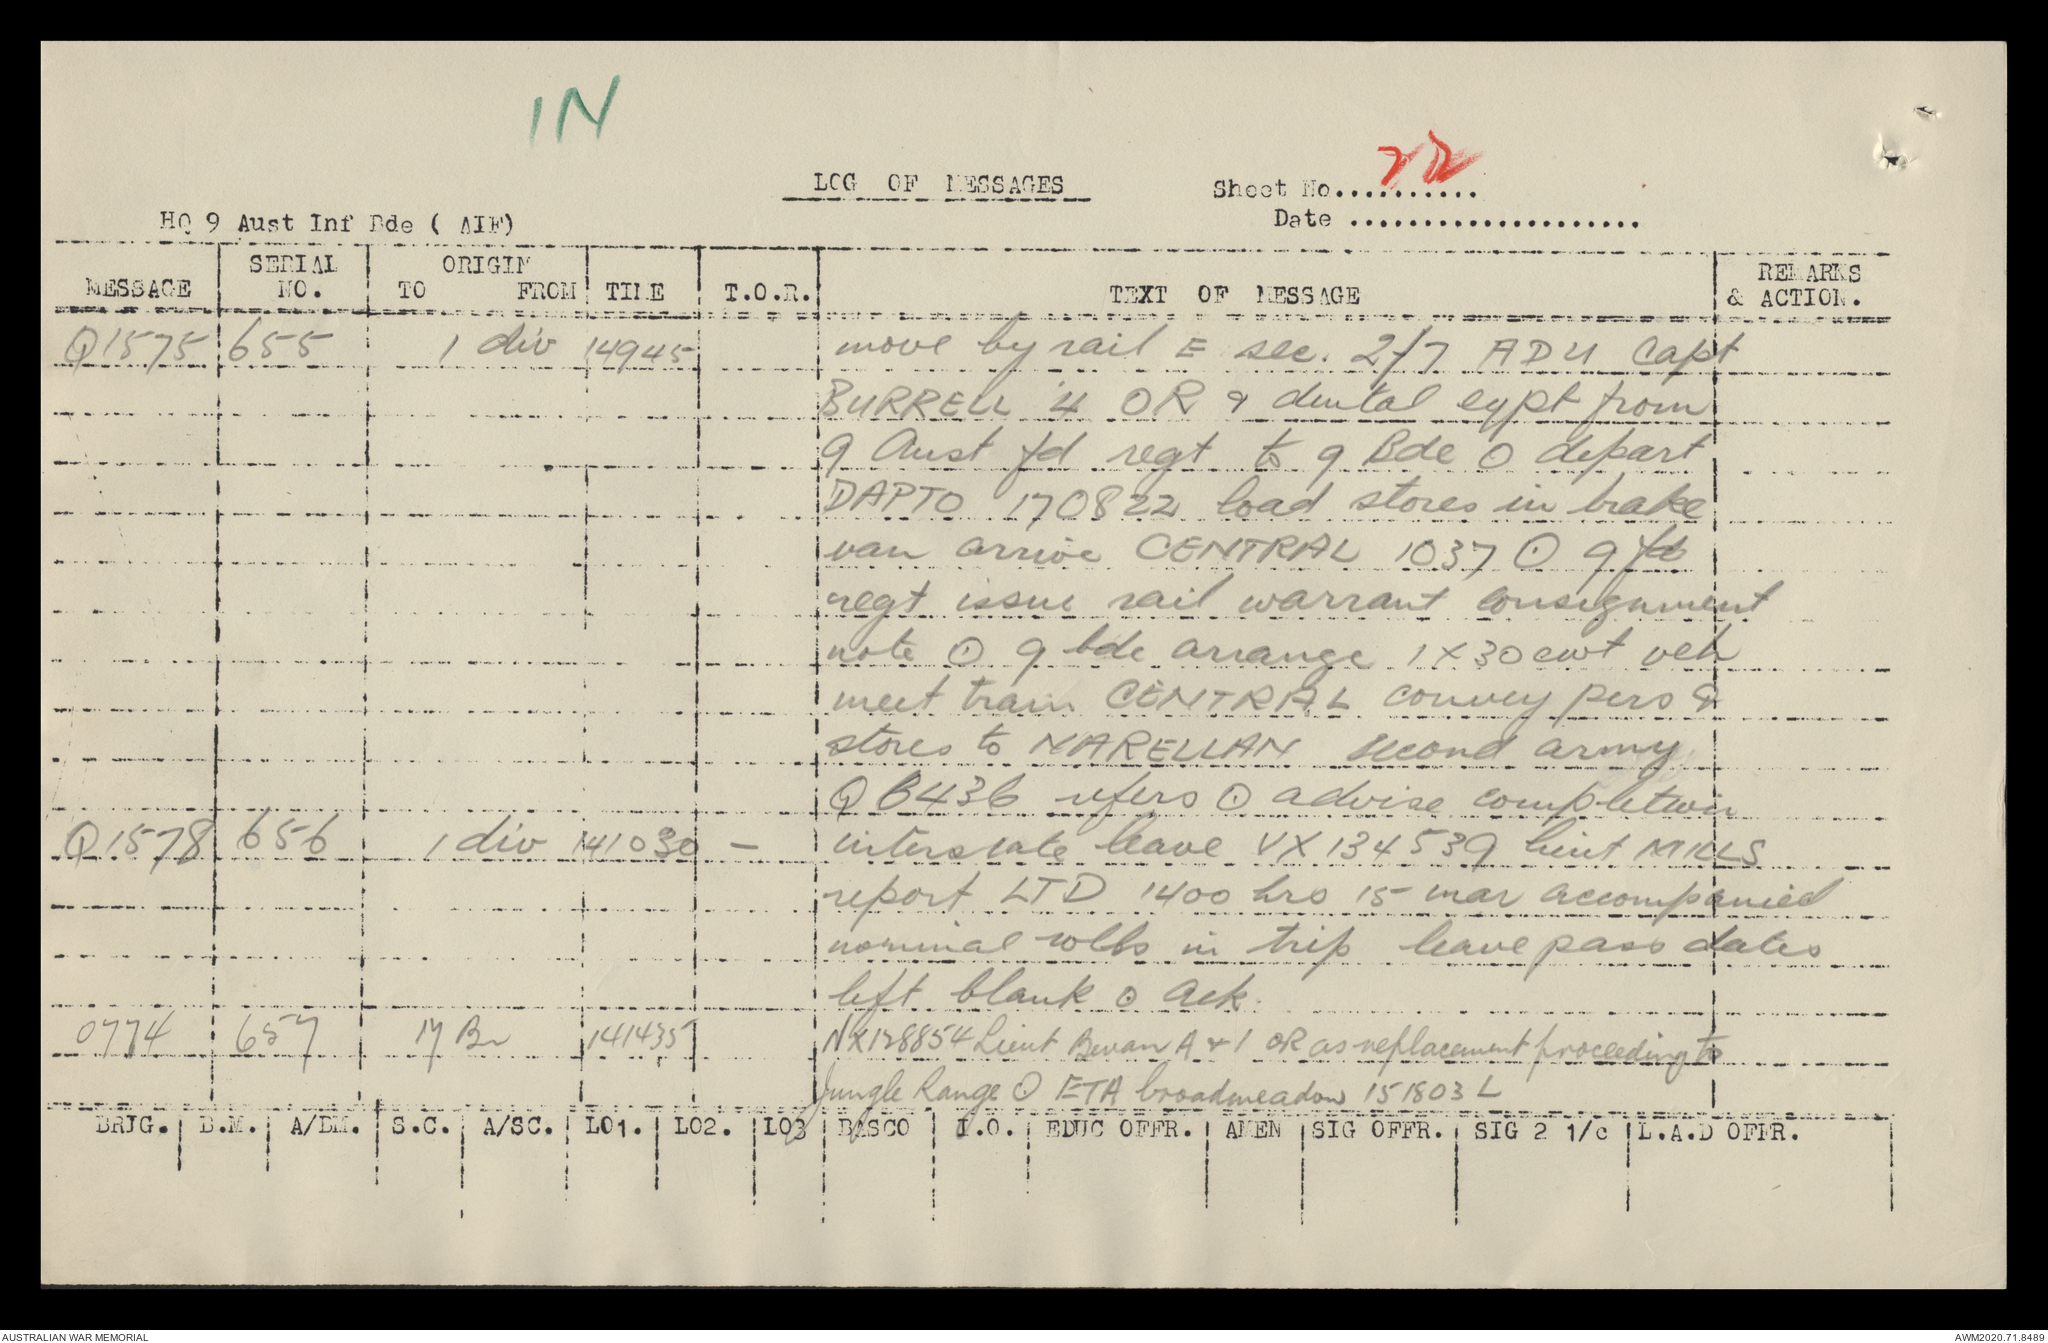 IN
LOG OF MESSAGES
Sheet No...........
22
HQ 9 Aust Inf Bde ( AIF)
Date .....................
MESSAGE SERIAL NO. ORIGIN TO FROM TIME T.O.R. TEXT OF MESSAGE REMARKS & ACTION.
Q1575 655 1 div 140945 move by rail E sec. 2/7 ADU Capt
BURRELL 4 OR & dental eqpt from
9 Aust fd regt to 9 Bde O depart
DAPTO 170822 load stores in brake
van arrive CENTRAL 1037 ⊙ 9 fd
regt issue rail warrant consignment
note ⊙ 9 bde arrange 1 X 30 cwt veh
meet train CENTRAL convey pers &
stores to NARELLAN second army
QB436 refers ⊙ advise completion
Q1578 656 1 div 141030 — interstate leave VX134539 lieut MILLS
report LTD 1400 hrs 15 mar accompanied
nominal rolls in trip leave pass dates
left blank ⊙ Ack.
0774 657 17 Bn 141435 NX128854 Lieut Bevan A & 1 OR as replacement proceeding to
Jungle Range ⊙ ETA broadmeadow 151803 L
BRIG. B.M. A/BM. S.C. A/SC. LO1. LO2. LO3 BASCO I.O. EDUC OFFR. AMEN SIG OFFR. SIG 2 1/c L.A.D OFFR.
AUSTRALIAN WAR MEMORIAL
AWM2020.71.8489